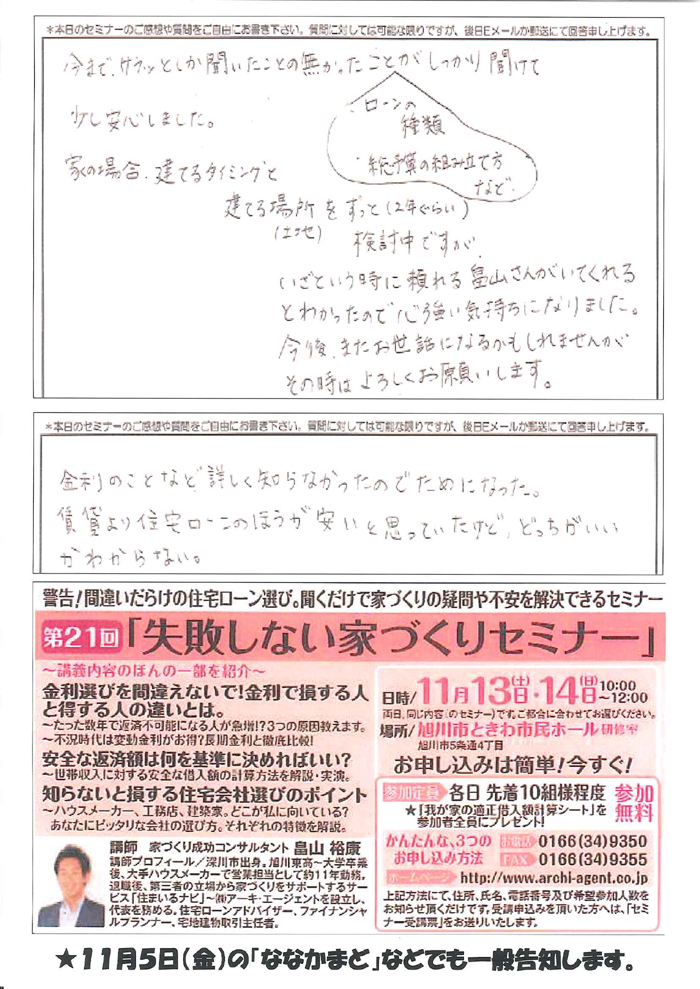 *本日のセミナーのご感想や質問をご自由にお書き下さい。質問に対しては可能な限りですが、後日Eメールか郵送にて回答申し上げます。
今まで、サラッとしか聞いたことの無かったことがしっかり聞けて
少し安心しました。
・ローンの
種類
・総予算の組み立て方
など
家の場合、建てるタイミングと
建てる場所をずっと(2年ぐらい)
(土地)
検討中ですが、
いざという時に頼れる畠山さんがいてくれる
とわかったので心強い気持ちになりました。
今後、またお世話になるかもしれませんが
その時はよろしくお願いします。
*本日のセミナーのご感想や質問をご自由にお書き下さい。質問に対しては可能な限りですが、後日Eメールか郵送にて回答申し上げます。
金利のことなど詳しく知らなかったのでためになった。
賃貸より住宅ローンのほうが安いと思っていたけど、どっちがいい
かわからない。
警告!間違いだらけの住宅ローン選び。聞くだけで家づくりの疑問や不安を解決できるセミナー
第21回「失敗しない家づくりセミナー」
~講義内容のほんの一部を紹介~
金利選びを間違えないで!金利で損する人
と得する人の違いとは。
~たった数年で返済不可能になる人が急増!?3つの原因教えます。
~不況時代は変動金利がお得?長期金利と徹底比較!
安全な返済額は何を基準に決めればいい?
~世帯収入に対する安全な借入額の計算方法を解説・実演。
知らないと損する住宅会社選びのポイント
~ハウスメーカー、工務店、建築家。どこが私に向いている?
あなたにピッタリな会社の選び方。それぞれの特徴を解説。
講師 家づくり成功コンサルタント 畠山 裕康
講師プロフィール/深川市出身。旭川東高~大学卒業
後、大手ハウスメーカーで営業担当として約11年勤務。
退職後、第三者の立場から家づくりをサポートするサー
ビス「住まいるナビ」~㈱アーキ・エージェントを設立し、
代表を務める。住宅ローンアドバイザー、ファイナンシャ
ルプランナー、宅地建物取引主任者。
日時/11月13日(土)・14日(日)10:00~12:00
両日、同じ内容(のセミナー)です。ご都合に合わせてお選びください。
場所/旭川市ときわ市民ホール 研修室
旭川市5条通4丁目
お申し込みは簡単!今すぐ!
参加定員 各日 先着10組様程度
★「我が家の適正借入額計算シート」を
参加者全員にプレゼント!
参加無料
かんたんな、3つの
お申し込み方法
お電話 0166(34)9350
FAX 0166(34)9355
ホームページ http://www.archi-agent.co.jp
上記方法にて、住所、氏名、電話番号及び希望参加人数を
お知らせ頂くだけです。受講申込みを頂いた方へは、「セミ
ナー受講票」をお送りいたします。
★11月5日(金)の「ななかまど」などでも一般告知します。